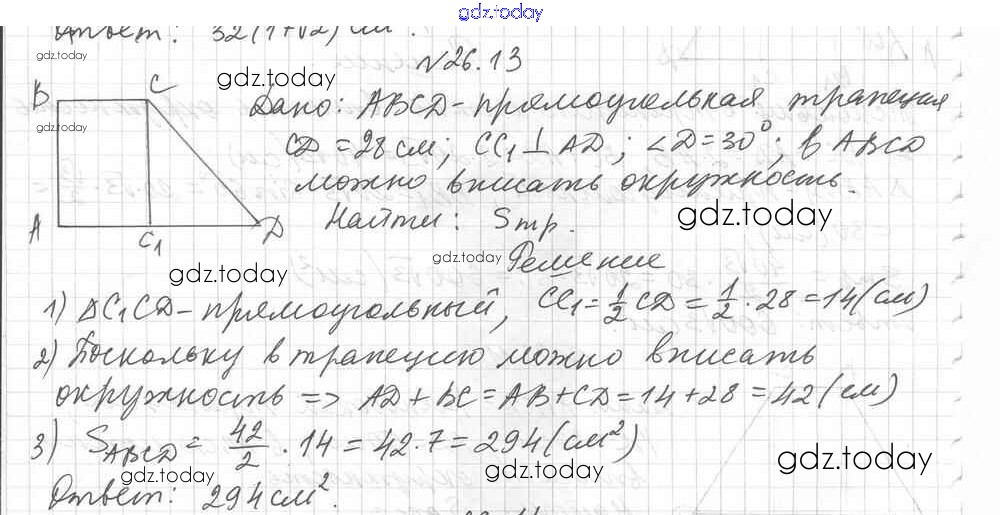 gdz.today
Ответ: 32(1+√2) см².
gdz.today
N26.13
gdz.today
B C
Дано: ABCD - прямоугольная трапеция
gdz.today
CD = 28 см; CC₁ ⊥ AD; ∠D = 30°; в ABCD
можно вписать окружность.
A C₁ D
Найти: Sтр.
gdz.today
gdz.today
Решение
gdz.today
1) ΔC₁CD - прямоугольный, CC₁ = 1/2 CD = 1/2 · 28 = 14 (см)
2) Поскольку в трапецию можно вписать
окружность => AD + BC = AB + CD = 14 + 28 = 42 (см)
3) S_ABCD = 42/2 · 14 = 42 · 7 = 294 (см²)
gdz.today
gdz.today
gdz.today
Ответ: 294 см².